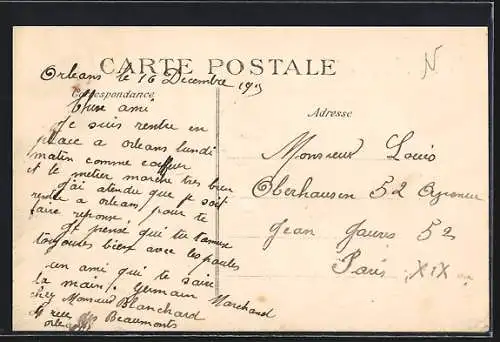 CARTE POSTALE
Orleans le 16 Decembre
Correspondance
Cher ami
Je suis rentre en
place a orleans lundi
matin comme coiffeur
et le metier marche tres bien
j'ai atendu que je soit
rentre a orleans pour te
faire reponse
Je pense que tu t'amuse
toujours bien avec les poules
un ami qui te saire
la main. Germain Marchand
chez Monsieur Blanchard
rue
Beaumonts
Adresse
Monsieur Louis
Oberhausen 52
Jean Jaures 52
Paris XIX
N